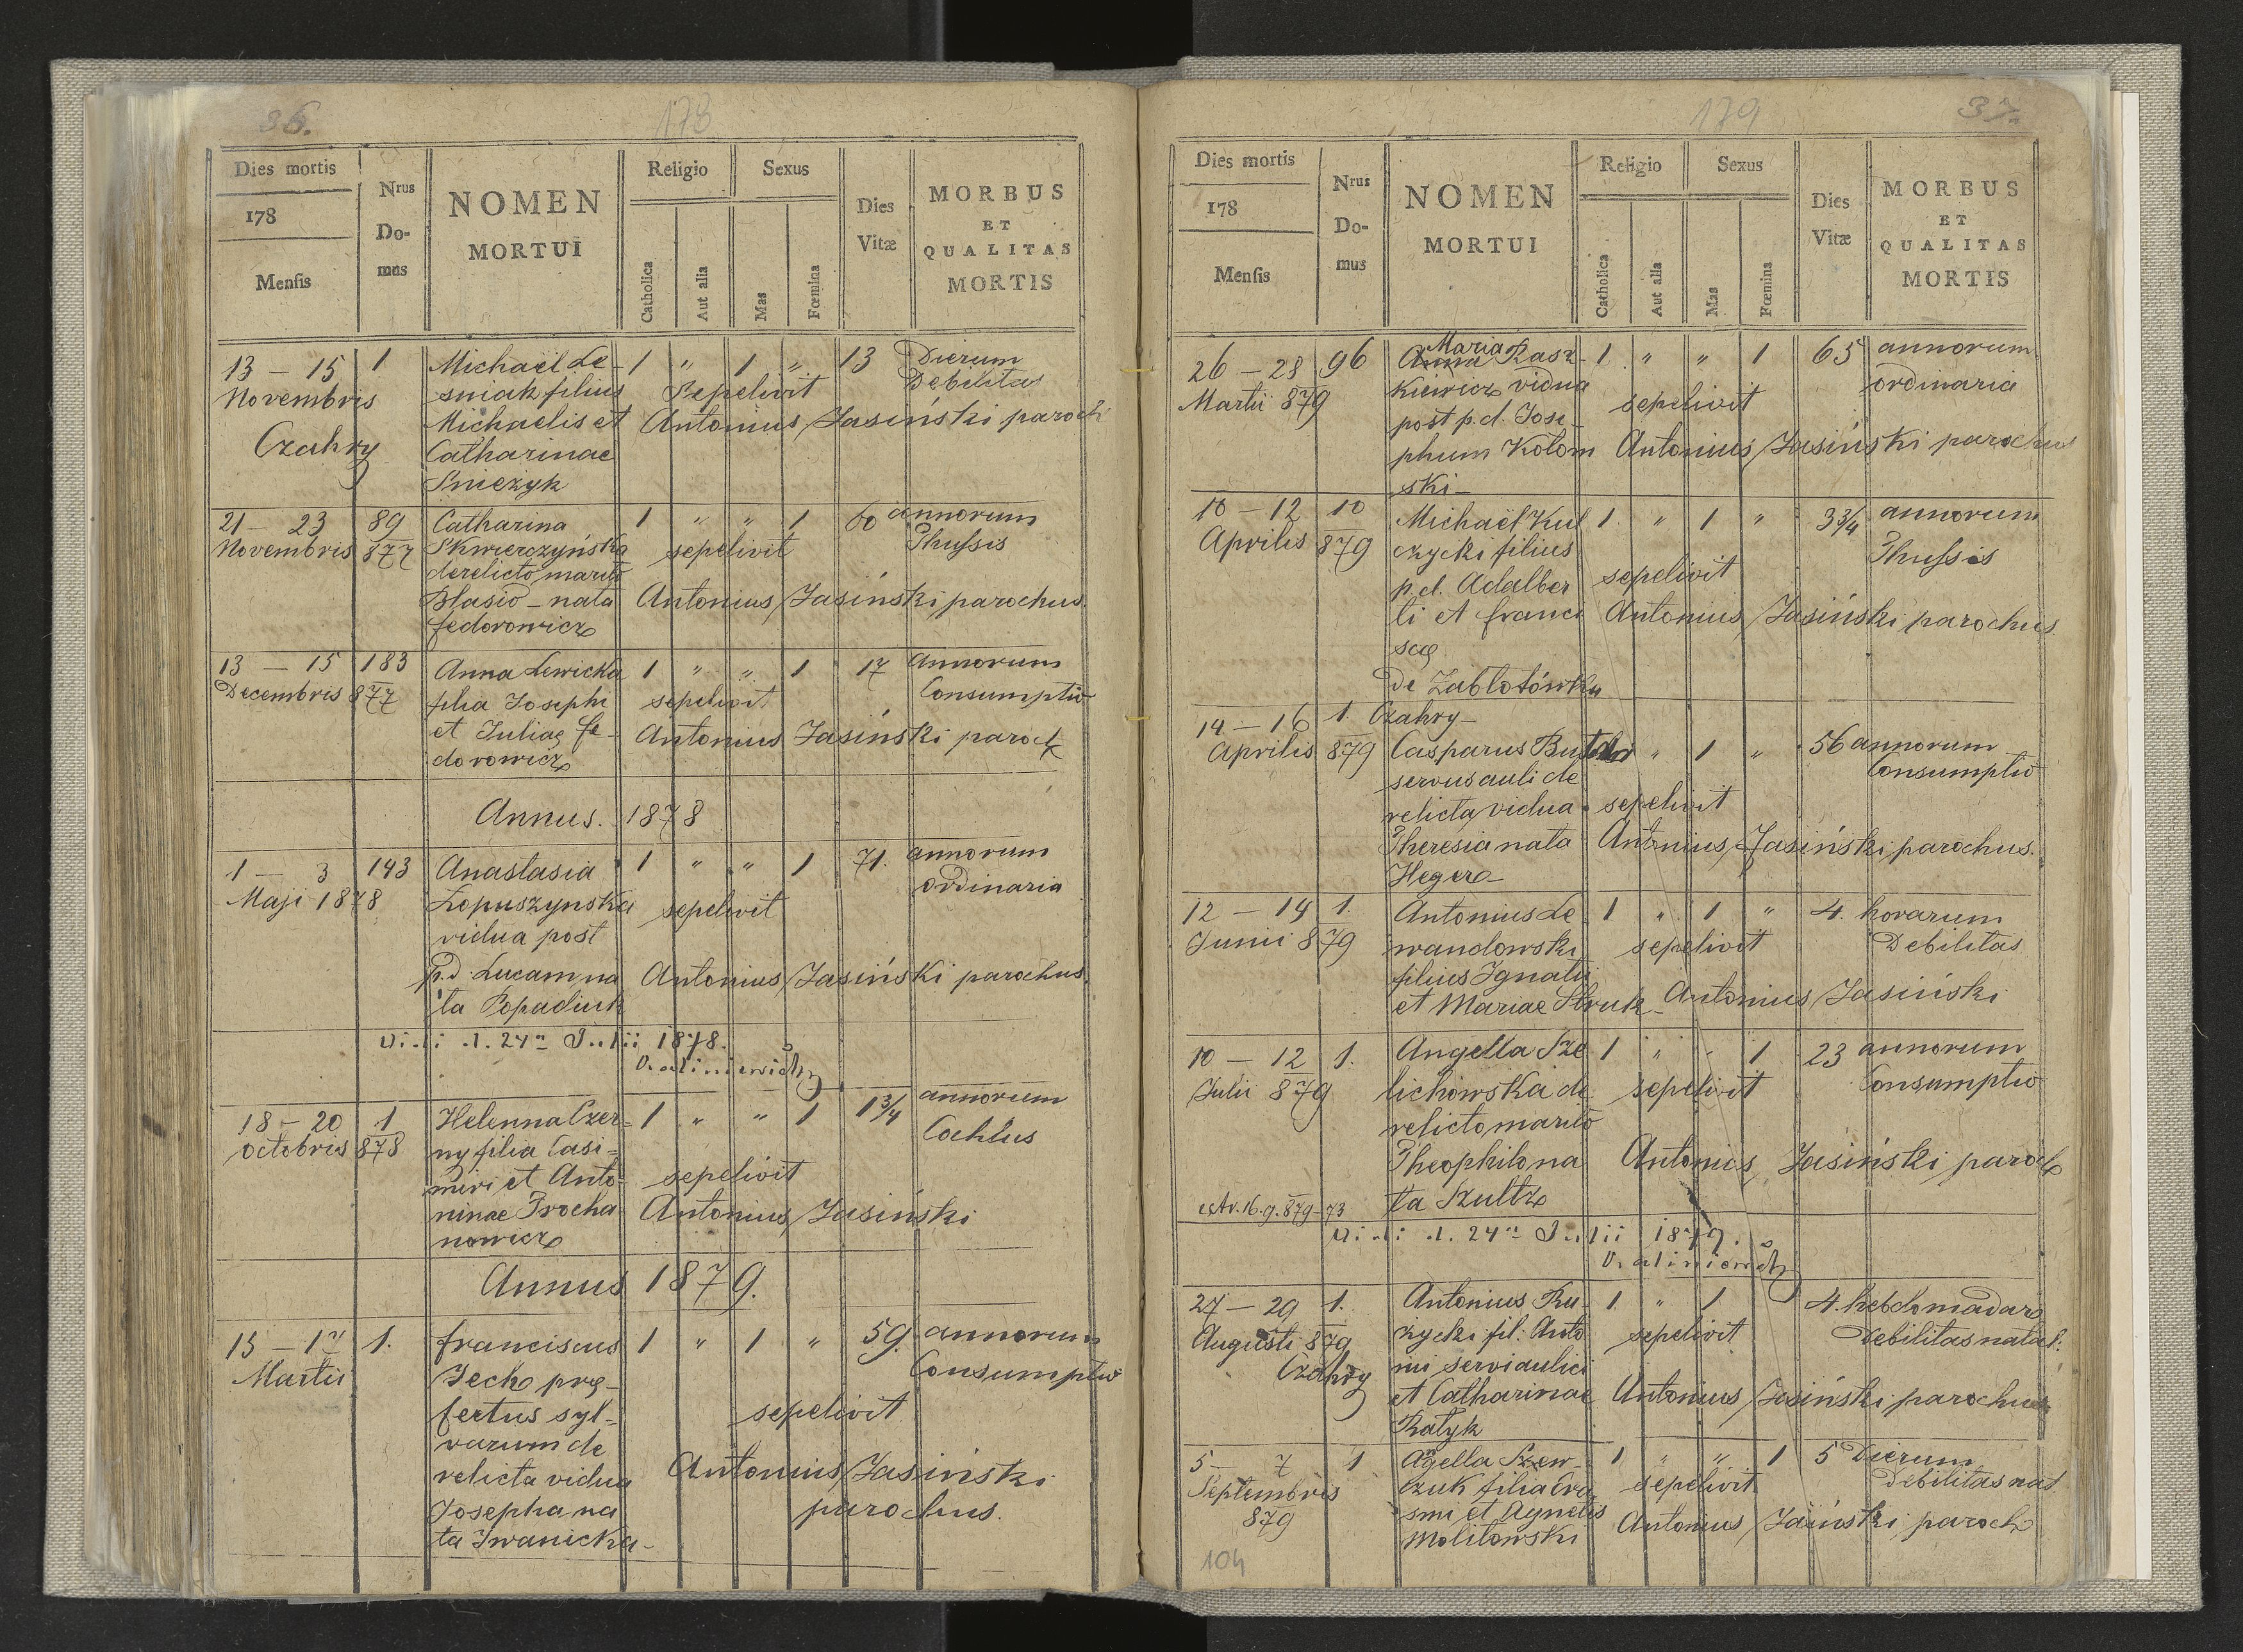 36.
178
Dies mortis
178
Mensis
Nrus
Do-
mus
NOMEN
MORTUI
Religio
Catholica
Aut alia
Sexus
Mas
Fœmina
Dies
Vitæ
MORBUS
ET
QUALITAS
MORTIS
13 – 15 1 Michaël Le- 1 " 1 " 13 Dierum
Novembris sniak filius Sepelivit Debilitas
Michaelis et Antonius Jasiński paroch
Czahry Catharinae
Snieżyk
21 – 23 89 Catharina 1 " " 1 60 annorum
Novembris 877 Skwierczyńska sepelivit Thussis
derelicto marito
Blasio – nata Antonius Jasiński parochus.
fedorowicz
13 – 15 183 Anna Lewicka 1 " " 1 17 annorum
Decembris 877 filia Josephi sepelivit Consumptio
et Juliae fe- Antonius Jasiński paroch
dorowicz
Annus. 1878
1 – 3 143 Anastasia 1 " " 1 71. annorum
Maji 1878 Łopuszynska sepelivit ordinaria
vidua post
p.d. Lucam na Antonius Jasiński parochus.
ta Popadiuk
24 1878.
18 – 20 1 Helenna Czer- 1 " " 1 1 3/4 annorum
octobris 878 ny filia Casi= Cochlus
miri et Anto- sepelivit
ninae Procha Antonius Jasiński
nowicz
Annus 1879.
15 – 17 1. franciscus 1 " 1 " 59. annorum
Martii Jech prę- Consumptio
fectus syl= sepelivit
varum de
relicta vidua Antonius Jasiński
Josepha na parochus.
ta Iwanicka –
179
37.
Dies mortis
178
Mensis
Nrus
Do-
mus
NOMEN
MORTUI
Religio
Catholica
Aut alia
Sexus
Mas
Fœmina
Dies
Vitæ
MORBUS
ET
QUALITAS
MORTIS
Maria
26 – 28 96 Anna Kasz- 1. " " 1 65 annorum
Martii 879 kiewicz vidua sepelivit ordinaria
post p.d. Jose-
phum Kotom Antonius Jasiński parochus
ski –
10 – 12 10 Michaël Kul 1. " 1 " 3 3/4 annorum
Aprilis 879 czycki filius Thussis
p.d. Adalber sepelivit
ti et franci Antonius Jasiński parochus.
scę
de Zabłotówka
14 – 16 1. Czahry –
Aprilis 879 Casparus " 1 " 56 annorum
servus auli de Consumptio
relicta vidua sepelivit
Theresia nata Antonius Jasiński parochus.
Heger
12 – 14 1. Antonius Le 1 " 1 " 4. horarum
Junii 879 wandowski sepelivit Debilitas
filius Ignatii
et Mariae Struk – Antonius Jasiński
10 – 12 1. Angella Sze 1 " " 1 23 annorum
Julii 879 lichowska de sepelivit Consumptio
relicto marito
Theophilo na Antonius Jasiński paroch
16.9.879 73 ta Szultz
24 1879.
27 – 29 1. Antonius Ru- 1. " 1 4. hebdomadar
Augusti 879 życki fil: Anto sepelivit Debilitas natal:
Czahry ni servi aulici
et Catharinae Antonius Jasiński parochus
Ratyk
5 – 7 1 Agella Szew- 1 " " 1 5 Dierum
Septembris czuk filia Era sepelivit Debilitas nat.
879 smi et Agnetis Antonius Jasiński paroch
Molitowski
104